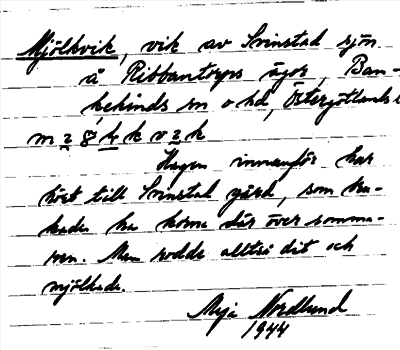 Mjölkvik, vik av Svinstad sjön
å Ribbantorps ägor, Ban-
kekinds sn o hd, Östergötlands l
Hagen innanför har
hört till Svinstad gård, som bru-
kade ha korna där över somma-
ren. Man rodde alltså dit och
mjölkade.
Maja Nordlund
1944